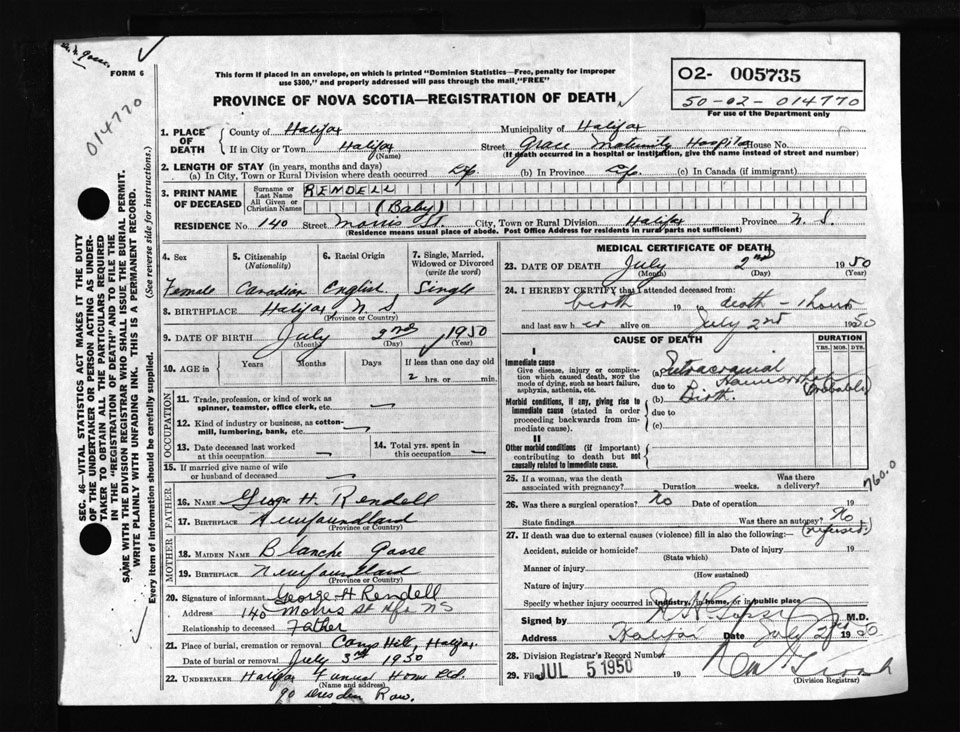 FORM 6
014770
This form if placed in an envelope, on which is printed "Dominion Statistics—Free, penalty for improper
use $300," and properly addressed will pass through the mail "FREE"
PROVINCE OF NOVA SCOTIA—REGISTRATION OF DEATH
02- 005735
50-02-014770
For use of the Department only
1. PLACE OF DEATH
County of Halifax Municipality of Halifax
If in City or Town Halifax (Name) Street Grace Maternity Hospital House No.
(If death occurred in a hospital or institution, give the name instead of street and number)
2. LENGTH OF STAY (in years, months and days)
(a) In City, Town or Rural Division where death occurred Life (b) In Province Life (c) In Canada (if immigrant)
3. PRINT NAME OF DECEASED
Surname or Last Name RENDELL
All Given or Christian Names (Baby)
RESIDENCE No. 140 Street Morris St. City, Town or Rural Division Halifax Province N. S.
(Residence means usual place of abode. Post Office Address for residents in rural parts not sufficient)
4. Sex Female
5. Citizenship (Nationality) Canadian
6. Racial Origin English
7. Single, Married, Widowed or Divorced (write the word) Single
8. BIRTHPLACE Halifax, N S
(Province or Country)
9. DATE OF BIRTH July 2nd 1950
(Month) (Day) (Year)
10. AGE in Years Months Days If less than one day old
2 hrs. or min.
OCCUPATION
11. Trade, profession, or kind of work as
spinner, teamster, office clerk, etc.
12. Kind of industry or business, as cotton-
mill, lumbering, bank, etc.
13. Date deceased last worked
at this occupation
14. Total yrs. spent in
this occupation
15. If married give name of wife
or husband of deceased
FATHER
16. NAME George H. Rendell
17. BIRTHPLACE Newfoundland
(Province or Country)
MOTHER
18. MAIDEN NAME Blanche Gosse
19. BIRTHPLACE Newfoundland
(Province or Country)
20. Signature of informant George H Rendell
Address 140 Morris St Hfx NS
Relationship to deceased Father
21. Place of burial, cremation or removal Camp Hill, Halifax
Date of burial or removal July 3rd 1950
22. UNDERTAKER Halifax Funeral Home Ltd.
(Name and address)
90 Dresden Row.
MEDICAL CERTIFICATE OF DEATH
23. DATE OF DEATH July 2nd 1950
(Month) (Day) (Year)
24. I HEREBY CERTIFY that I attended deceased from:
birth 19 to death - 2 hours
and last saw her alive on July 2nd 1950
CAUSE OF DEATH
DURATION
YRS. MOS. DYS.
I
Immediate cause
Give disease, injury or complica-
tion which caused death, not the
mode of dying, such as heart failure,
asphyxia, asthenia, etc.
(a) Intracranial
due to Haemorrhage (Probable)
Morbid conditions, if any, giving rise to
immediate cause (stated in order
proceeding backwards from im-
mediate cause).
(b) Birth.
due to
(c)
II
Other morbid conditions (if important)
contributing to death but not
causally related to immediate cause.
25. If a woman, was the death
associated with pregnancy? Duration weeks. Was there
a delivery?
760.0
26. Was there a surgical operation? No Date of operation 19
State findings Was there an autopsy? No
(refused)
27. If death was due to external causes (violence) fill in also the following:—
Accident, suicide or homicide? Date of injury 19
(State which)
Manner of injury
(How sustained)
Nature of injury
Specify whether injury occurred in industry, in home, or in public place
Signed by M.D.
Address Halifax Date July 2nd 1950
28. Division Registrar's Record Number
29. Filed JUL 5 1950 19
(Division Registrar)
SEC. 46—VITAL STATISTICS ACT MAKES IT THE DUTY
OF THE UNDERTAKER OR PERSON ACTING AS UNDER-
TAKER TO OBTAIN ALL THE PARTICULARS REQUIRED
IN THE "REGISTRATION OF DEATH" AND TO FILE THE
SAME WITH THE DIVISION REGISTRAR WHO SHALL ISSUE THE BURIAL PERMIT.
WRITE PLAINLY WITH UNFADING INK. THIS IS A PERMANENT RECORD.
Every item of information should be carefully supplied. (See reverse side for instructions.)